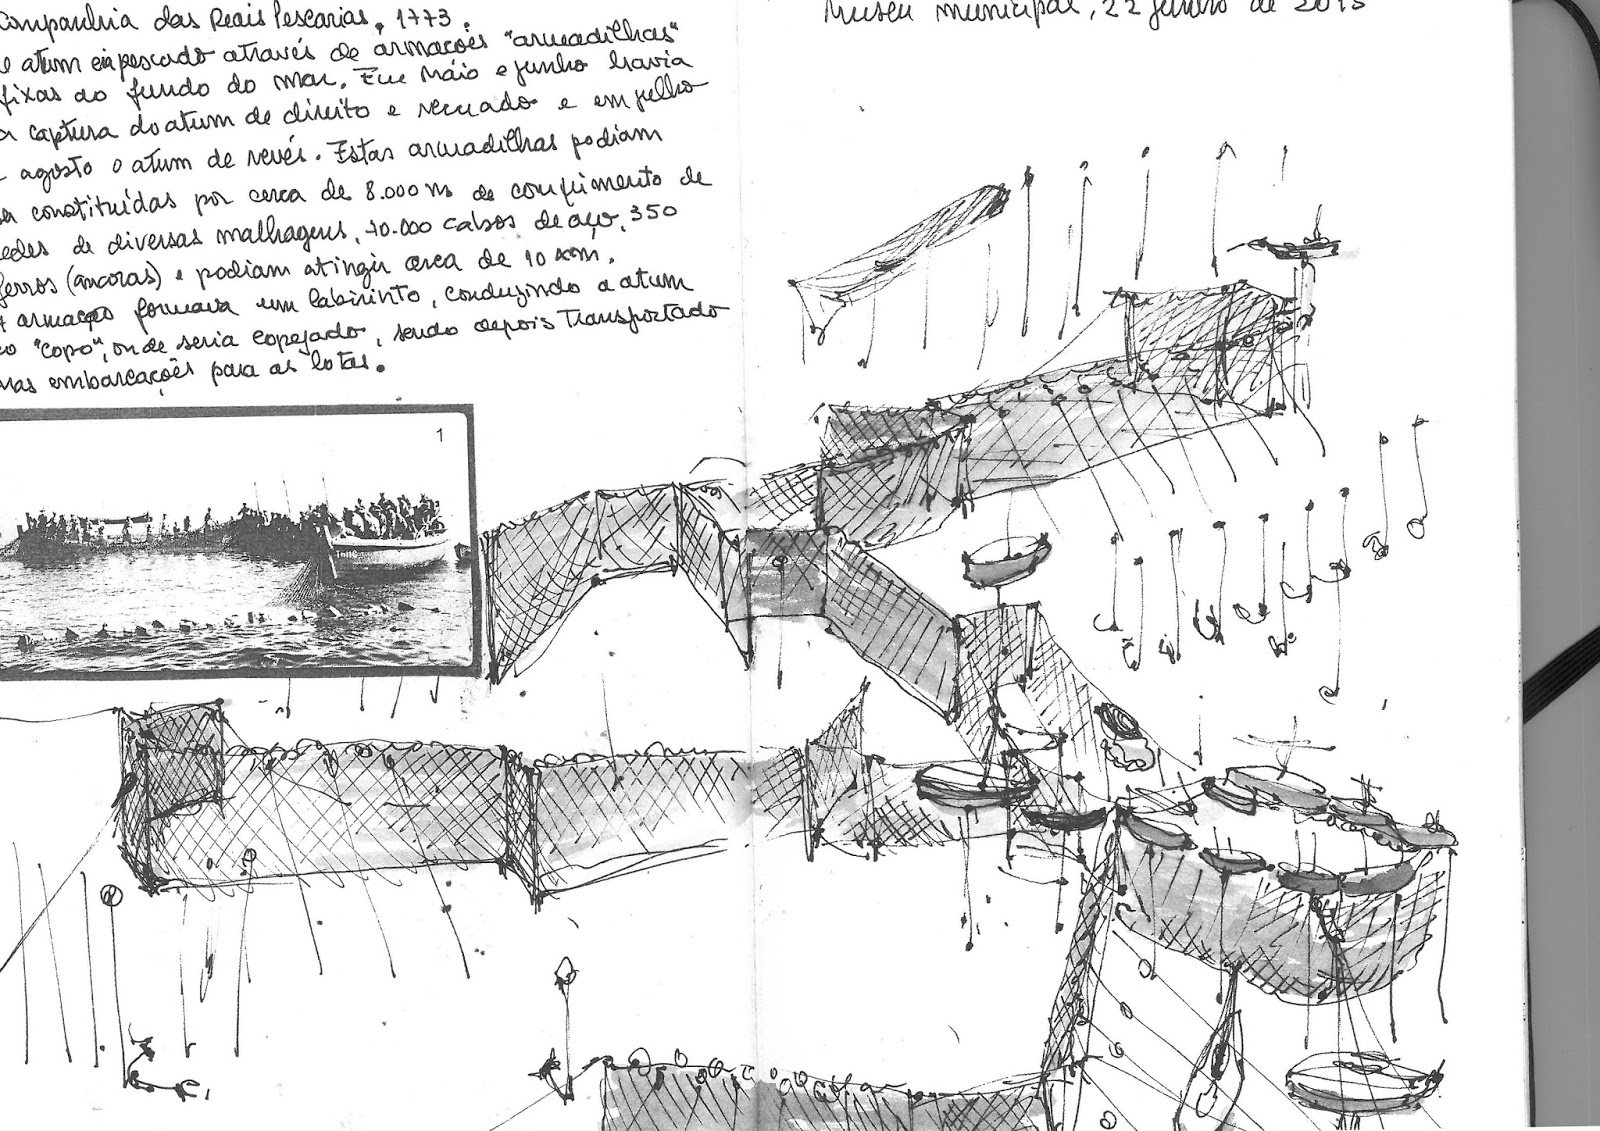 Companhia das Reais Pescarias, 1773.
atum era pescado através de armações "armadilhas"
fixas ao fundo do mar. Em Máio e junho havia
a captura do atum de direito e recuado e em julho
agosto o atum de revés. Estas armadilhas podiam
constituídas por cerca de 8.000 m de comprimento de
redes de diversas malhagens, 10.000 cabos de aço, 350
ferros (âncoras) e podiam atingir cerca de 10 km.
armação formava um labirinto, conduzindo o atum
ao "copo", onde seria copejado, sendo depois transportado
nas embarcações para as lotas.
Museu municipal, 22 junho de 2013
1